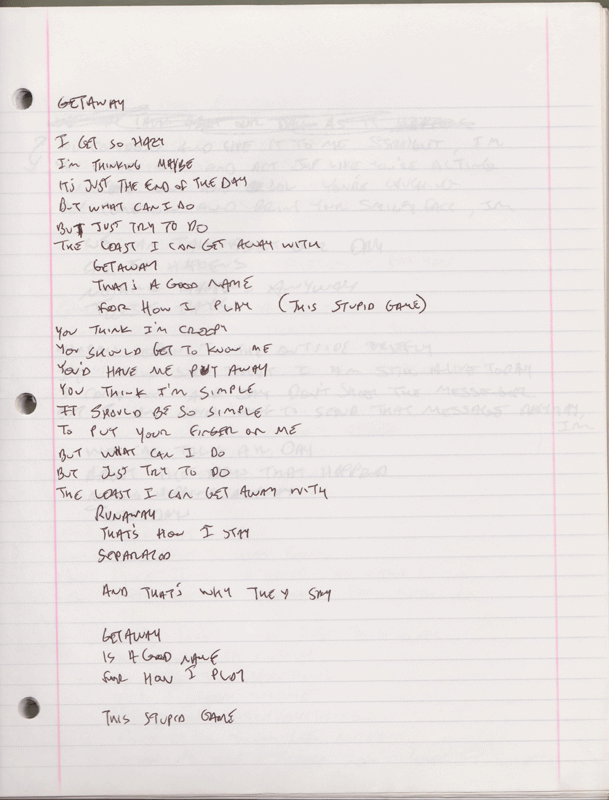 GETAWAY
I GET SO HAZY
I'M THINKING MAYBE
IT'S JUST THE END OF THE DAY
BUT WHAT CAN I DO
BUT JUST TRY TO DO
THE LEAST I CAN GET AWAY WITH
GETAWAY
THAT'S A GOOD NAME
FOR HOW I PLAY (THIS STUPID GAME)
YOU THINK I'M CREEPY
YOU SHOULD GET TO KNOW ME
YOU'D HAVE ME PUT AWAY
YOU THINK I'M SIMPLE
IT SHOULD BE SO SIMPLE
TO PUT YOUR FINGER ON ME
BUT WHAT CAN I DO
BUT JUST TRY TO DO
THE LEAST I CAN GET AWAY WITH
RUNAWAY
THAT'S HOW I STAY
SEPARATED
AND THAT'S WHY THEY SAY
GETAWAY
IS A GOOD NAME
FOR HOW I PLAY
THIS STUPID GAME